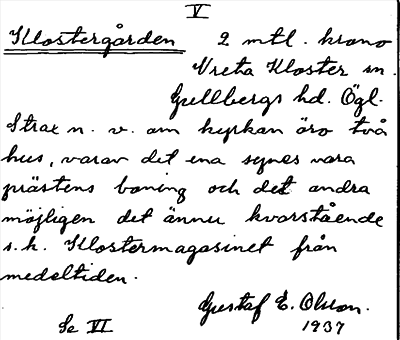 V
Klostergården 2 mtl. krono
Vreta Kloster sn.
Gullbergs hd. Ögl.
Strax n. v. om kyrkan äro två
hus, varav det ena synes vara
prästens boning och det andra
möjligen det ännu kvarstående
s.k. Klostermagasinet från
medeltiden.
Gustaf E. Olsson.
Se VI 1937